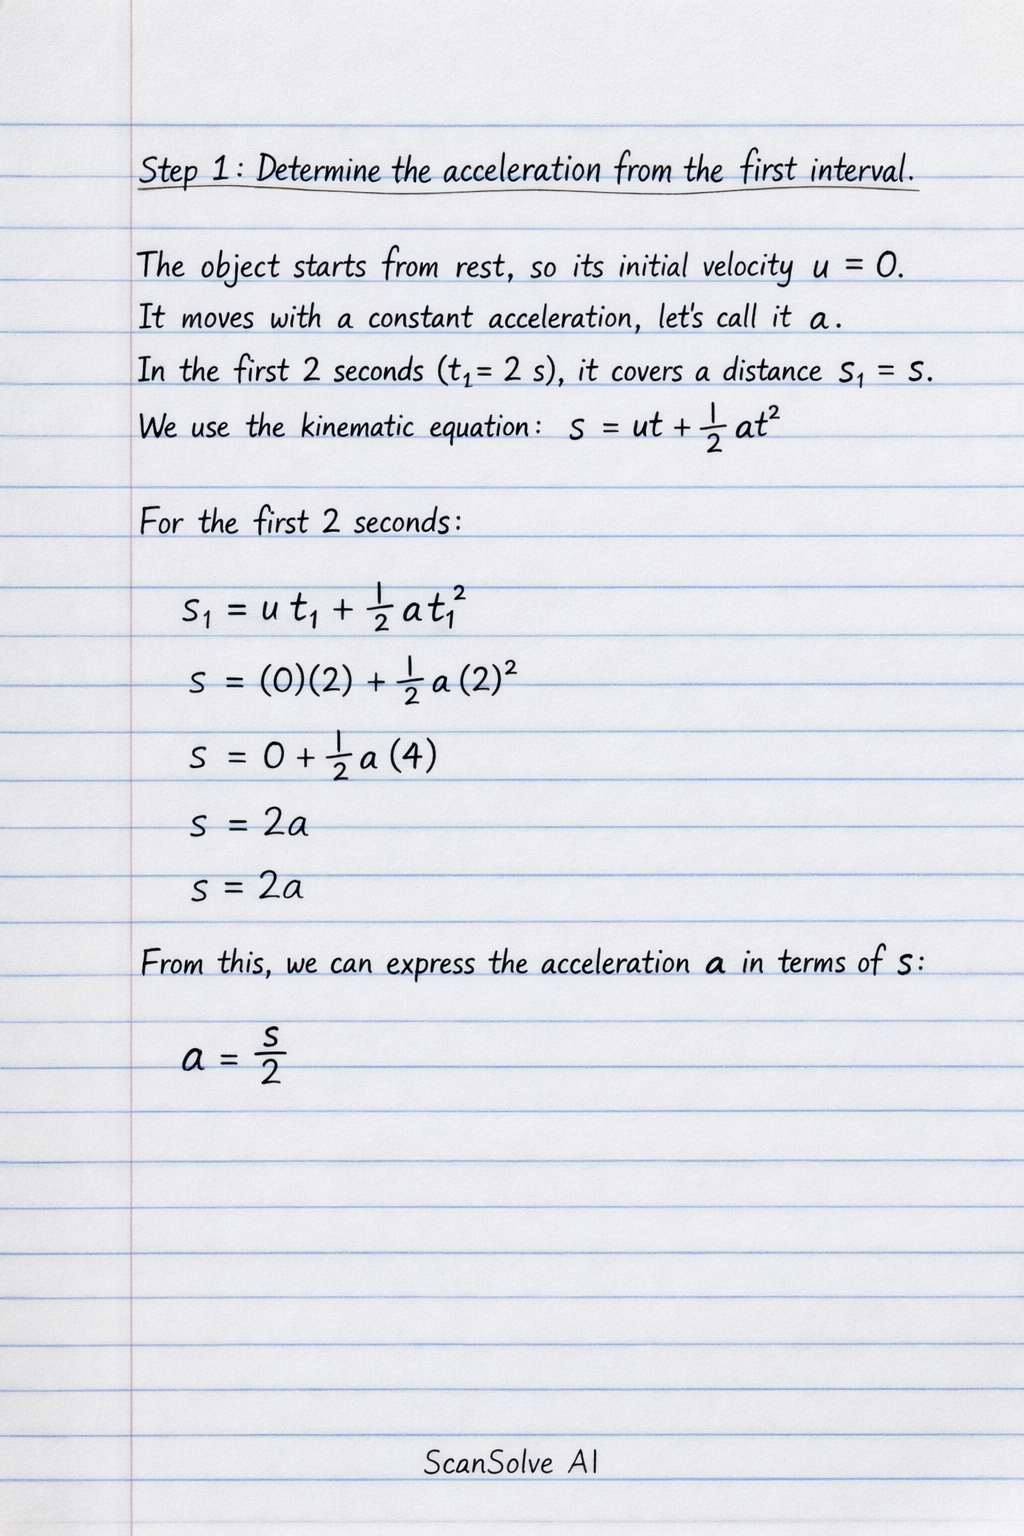 Step 1: Determine the acceleration from the first interval.
The object starts from rest, so its initial velocity u = 0.
It moves with a constant acceleration, let's call it a.
In the first 2 seconds (t₁ = 2 s), it covers a distance s₁ = s.
We use the kinematic equation: s = ut + 1/2 at²
For the first 2 seconds:
s₁ = u t₁ + 1/2 at₁²
s = (0)(2) + 1/2 a (2)²
s = 0 + 1/2 a (4)
s = 2a
s = 2a
From this, we can express the acceleration a in terms of s:
a = s/2
ScanSolve AI